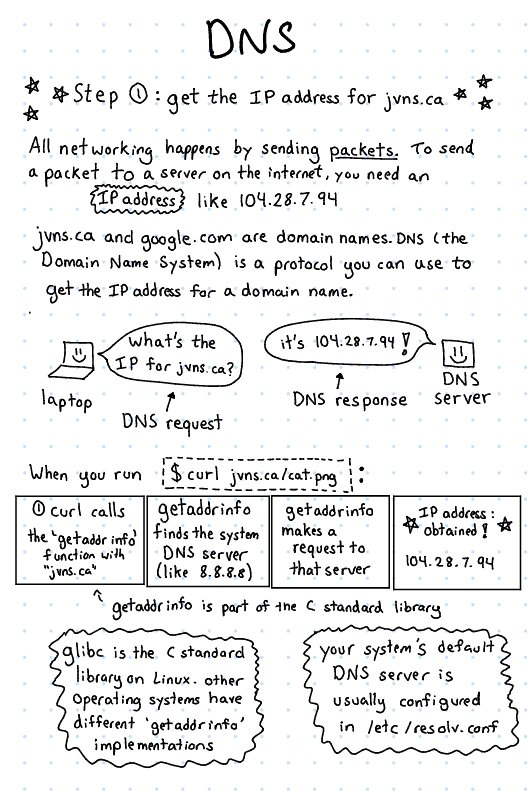 DNS
Step ①: get the IP address for jvns.ca
All networking happens by sending packets. To send
a packet to a server on the internet, you need an
IP address like 104.28.7.94
jvns.ca and google.com are domain names. DNS (the
Domain Name System) is a protocol you can use to
get the IP address for a domain name.
what's the
IP for jvns.ca?
it's 104.28.7.94!
laptop
DNS request
DNS response
DNS
server
When you run $ curl jvns.ca/cat.png :
① curl calls
the 'getaddrinfo'
function with
"jvns.ca"
getaddrinfo
finds the system
DNS server
(like 8.8.8.8)
getaddrinfo
makes a
request to
that server
IP address:
obtained!
104.28.7.94
getaddrinfo is part of the C standard library
glibc is the C standard
library on Linux. other
operating systems have
different 'getaddrinfo'
implementations
your system's default
DNS server is
usually configured
in /etc/resolv.conf